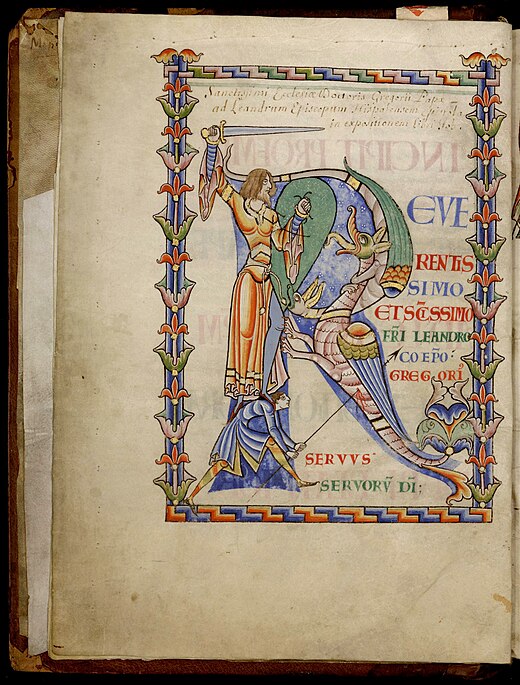 Sanctissimi Ecclesiæ Doctoris Gregorii Papæ
ad Leandrum Episcopum Hispalensem Epistola
in expositionem libri Iob
INCIPIT PROEM
REVE
RENTIS
SIMO
ET SC̄ISSIMO
FR̄I LEANDRO
COEPO:
GREGORI
SERVVS
SERVORV̄ DĪ: